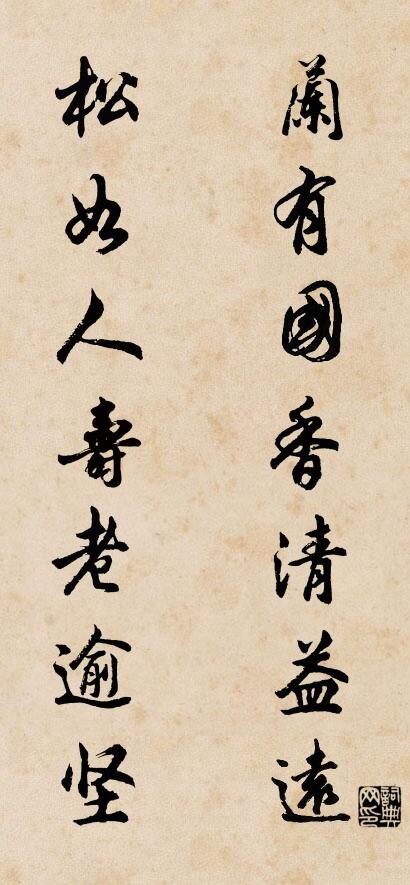 蘭有國香清益遠
松如人壽老逾坚
詞典網印